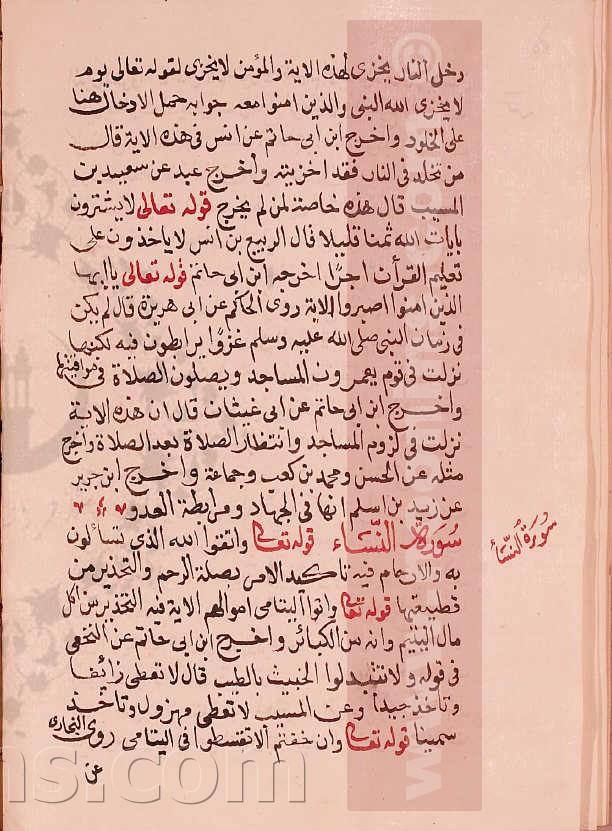 دخل النار يخزى لهذه الاية والمؤمن لا يخزى لقوله تعالى يوم
لا يخزى الله النبى والذين امنوا معه جوابه حمل الادخال هنا
على الخلود واخرج ابن ابى حاتم عن انس فى هذه الاية قال
من تخلد فى النار فقد اخزيته واخرج عبد عن سعيد بن
المسيب قال هذه خاصة لمن لم يخرج قوله تعالى لا يشترون
بايات الله ثمنا قليلا قال الربيع بن انس لا ياخذون على
تعليم القرأن اجرًا اخرجه ابن ابى حاتم قوله تعالى ياايها
الذين امنوا اصبروا الاية روى الحاكم عن ابى هريرة قال لم يكن
فى زمان النبى صلى الله عليه وسلم غزوًا يرابطون فيه لكنها
نزلت فى قوم يعمرون المساجد ويصلون الصلاة فى مواقيتها
واخرج ابن ابى حاتم عن ابى غيثات قال ان هذه الاية
نزلت فى لزوم المساجد وانتظار الصلاة بعد الصلاة واخرج
مثله عن الحسن ومحمد بن كعب وجماعة واخرج ابن جرير
عن زيد بن اسلم انها فى الجهاد ومرابطة العدو
سورة النساء قوله تعالى واتقوا الله الذى تسائلون
به والارحام فيه تاكيد الامر بصلة الرحم والتحذير من
قطيعتها قوله تعالى واتوا اليتامى اموالهم الاية فيه التحذير من اكل
مال اليتيم وانه من الكبائر واخرج ابن ابى حاتم عن النخعى
فى قوله ولا تتبدلوا الخبيث بالطيب قال لا تعطى زائفا
وتاخذ جيدا وعن المسيب لا تعطى مهزول وتاخذ
سمينا قوله تعالى وان خفتم الا تقسطوا فى اليتامى روى البخارى
عن
سورة النساء